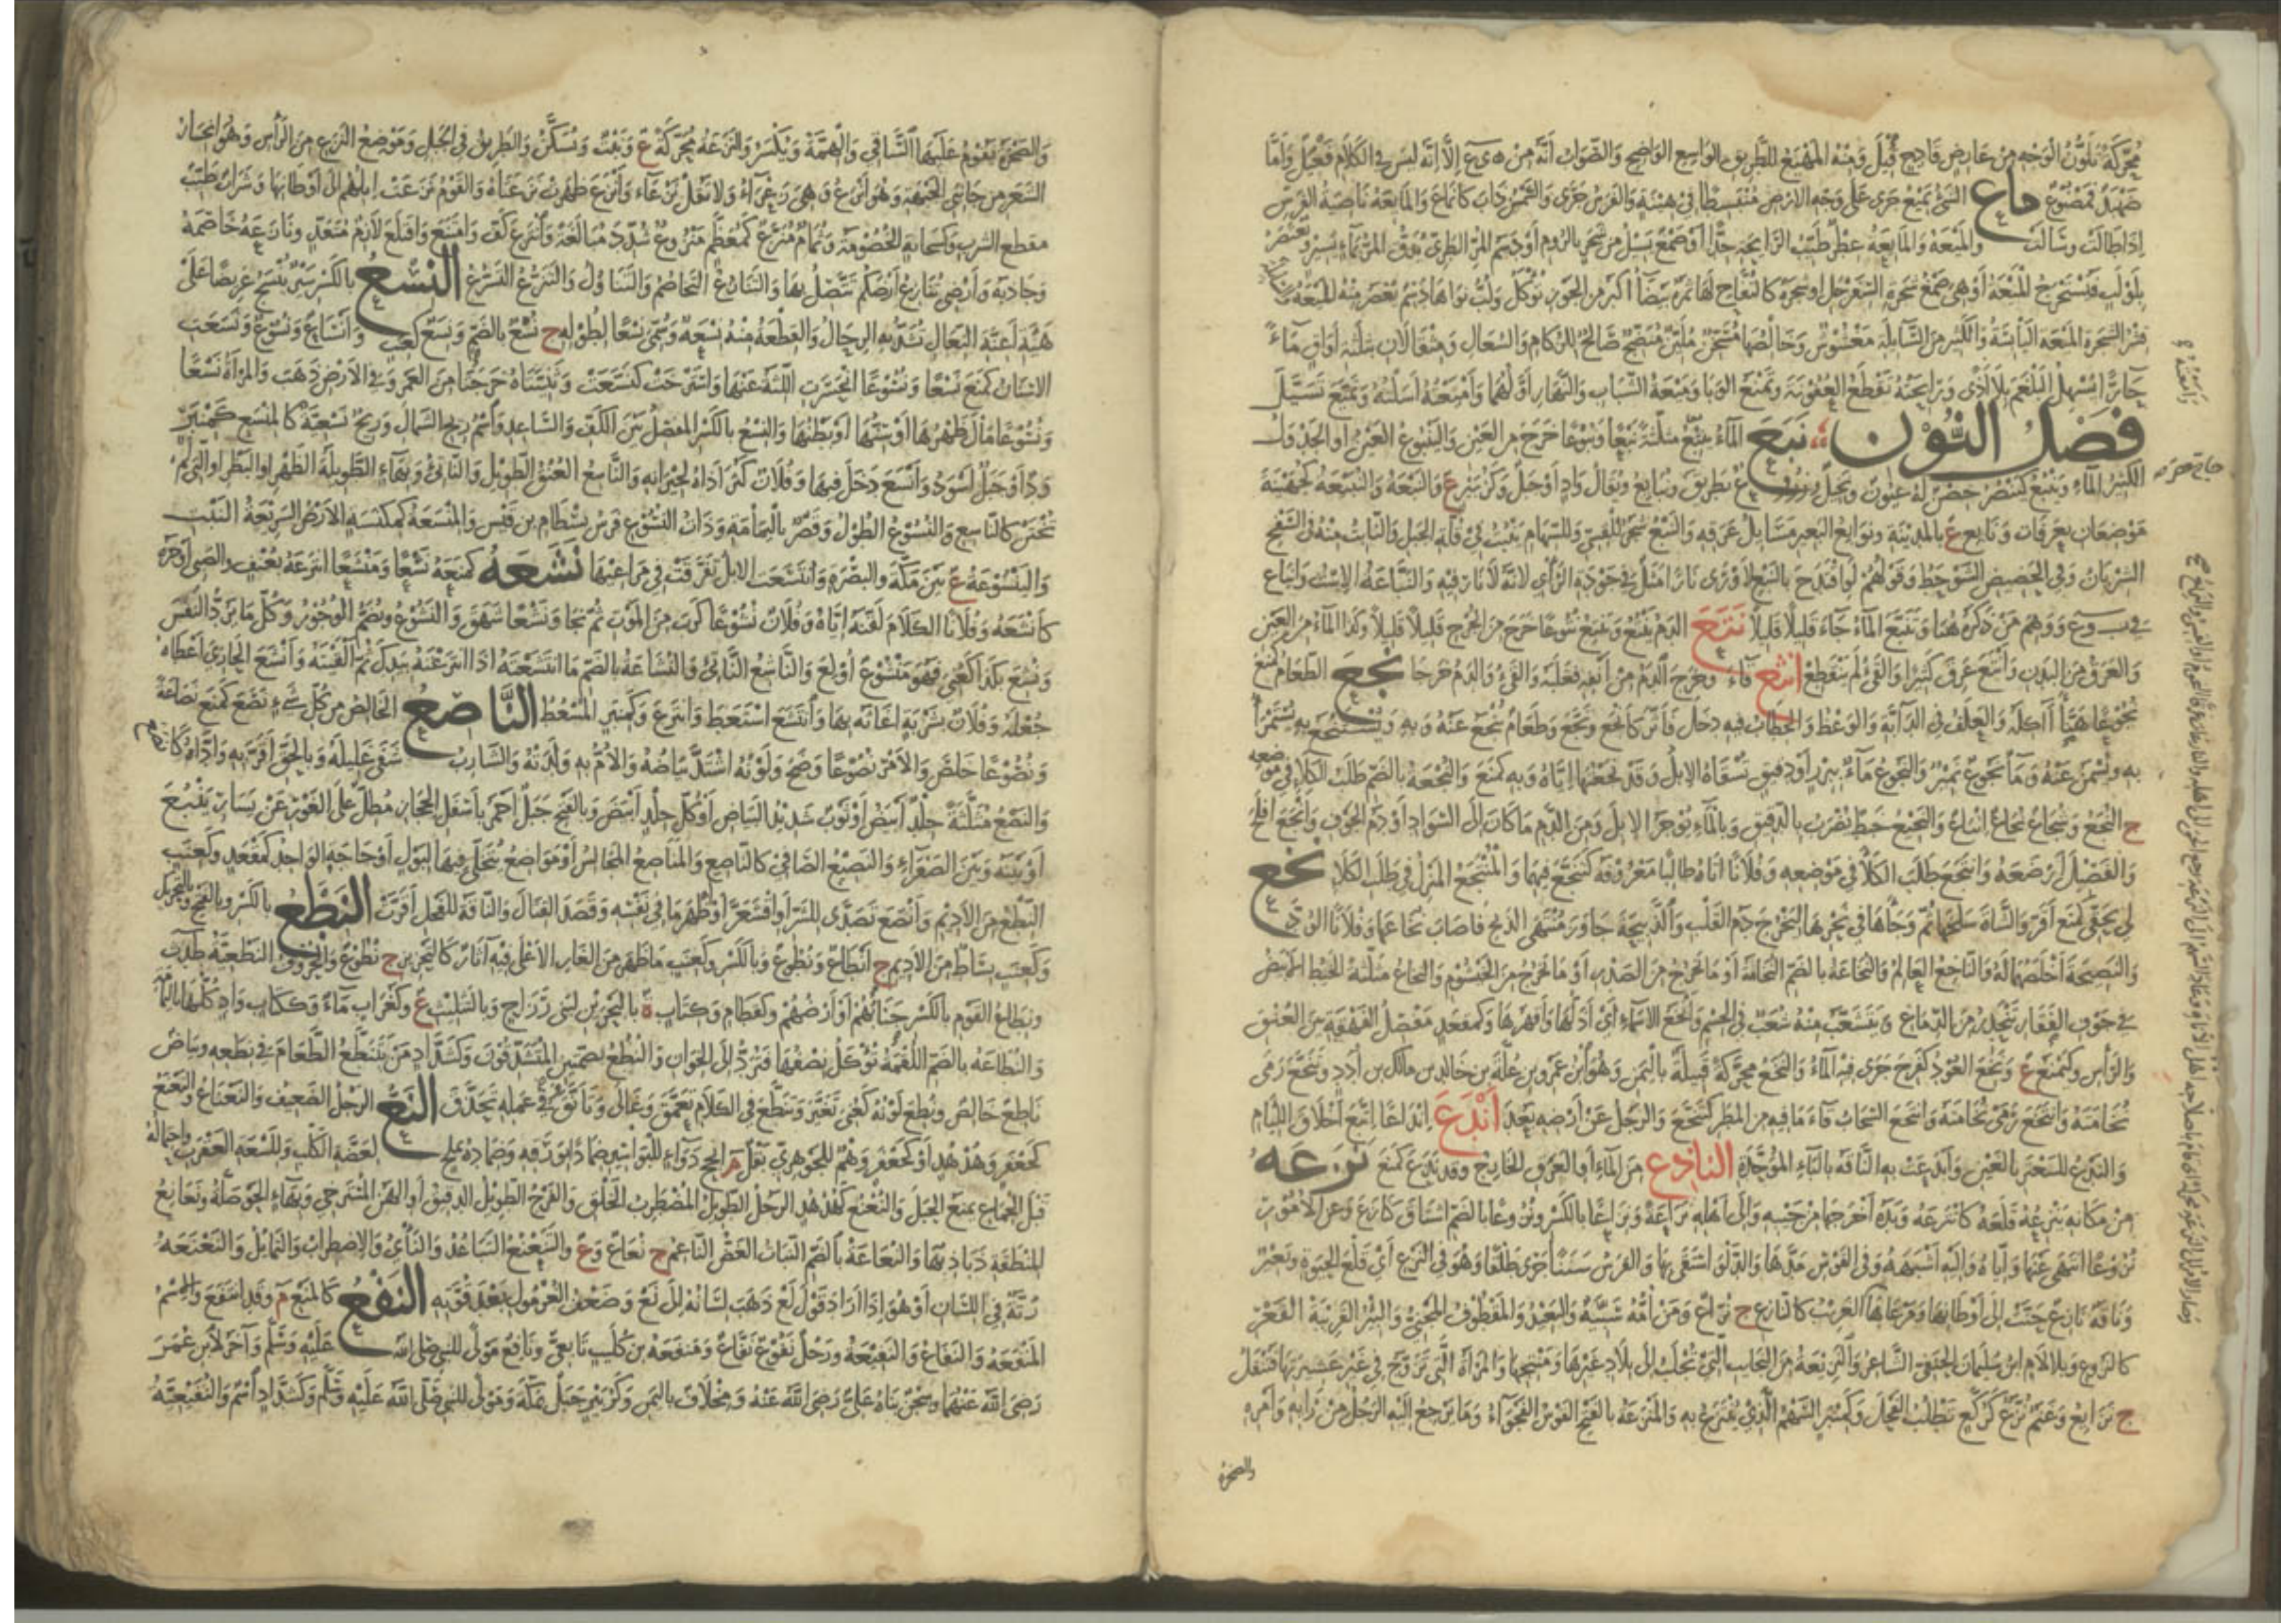 محركة تلون الوجه من عارض فادح قيل ومنه المهيع للطريق الواسع الواضح والصواب انه من ه ي ع الا انه ليس في الكلام فعيل واما
ضهيد فمصنوع ماع الشئ يميع جرى على وجه الارض منبسطا في هينة والفرس جرى والسمن ذاب كانماع والمايعة ناصية الفرس
اذا طالت وسالت والميعة والمايعة عطر طيب الرايحة جدا او صمغ يسيل من شجر بالروم او دسم المر الطري يدق المر بماء يسير ويعتصر
بلولب فتستخرج الميعة او هي صمغ شجرة السفرجل او شجرة كالتفاح لها ثمرة بيضا اكبر من الجوز تؤكل ولب نواها دسم يعصر منه الميعة
قشر الشجرة الميعة اليابسة والكثير من السايلة مغشوش وخالصها مسخن ملين منضج صالح للزكام والسعال ومثقالان بثلاث اواق ماء
حارا يسهل البلغم بلا اذى ورايحته تقطع العفونة وتمنع الوبا وميعة الشباب والنهار اولهما وامعته اسلته وتميع تسيل
فصل النون نبع الماء ينبع مثلثة نبعا ونبوعا خرج من العين والينبوع العين او الجدول
الكثير الماء وينبع كينصر حصن له عيون ونخيل وزروع بطريق ونبايع ويقال واد او جبل وكزبير ع والنبعة والنبيعة كجهينة
موضعان بعرفات ونابع ع بالمدينة ونوابع البعير مسايل عرقه والنبع شجر للقسي وللسهام ينبت في قلة الجبل والنابت منه في السفح
الشريان وفي الحضيض الشوحط وقولهم لو اقتدح بالنبع لاورى نارا مثل في جودة الراي لانه لا نار فيه والنباعة الاست وانباع
في ب و ع ووهم من ذكره هنا وتنبع الماء جاء قليلا قليلا نتع الدم ينتع وينتع نتوعا خرج من الجرح قليلا قليلا وكذا الماء من العين
والعرق من البدن وانتع عرق كثيرا والقئ لم ينقطع انثع قاء وخرج الدم من انفه فغلبه والقئ والدم خرجا نجع الطعام كمنع
نجوعا هنا آكله والعلف في الدابة والوعظ والخطاب فيه دخل فاثر كانجع ونجع وطعام ينجع عنه وبه ويستنجع به يستمرأ
به ويسمن عنه وماء نجوع نمير والنجوع ماء ببزر او دقيق تسقاه الابل وقد نجعتها اياه وبه كمنع والنجعة بالضم طلب الكلا في موضعه
ج النجع وشجاع نجاع اتباع والنجيع خبط يضرب بالدقيق وبالماء يوجر الابل ومن الدم ما كان الى السواد او دم الجوف وانجع افلح
والفصيل ارضعه وانتجع طلب الكلا في موضعه وفلانا اتاه طالبا معروفه كتنجع فيهما والمنتجع المنزل في طلب الكلا نخع
لي بحقي كمنع اقر والشاة سلخها ثم وجأها في نحرها ليخرج دم القلب والذبيحة جاوز منتهى الذبح فاصاب نخاعها وفلانا الود
والنصيحة اخلصهما له والناخع العالم والنخاعة بالضم النخامة او ما يخرج من الصدر او ما يخرج من الخيشوم والنخاع مثلثة الخيط الابيض
في جوف الفقار ينحدر من الدماغ يتشعب منه شعب في الجسم وانخع الاسماء اي اذلها واقهرها وكمقعد مفصل الفهقة بين العنق
والراس وكيمنع ع ونخع العود كفرح جرى فيه الماء والنخع محركة قبيلة باليمن وهو ابن عمرو بن علة بن خالد بن مالك بن ادد وتنخع رمى
نخامته وانتخع رمى نخامته وانتخع السحاب قاء ما فيه من المطر كتنخع والرجل عن ارضه بعد اندع انداعا اتبع اخلاق اللئام
والندع للسعتر بالغين وابدعت به الناقة بالباء الموحدة النادع من الماء او العرق الخارج وقد ندع كمنع نزعه
من مكانه ينزعه قلعه كانتزعه ويده اخرجها من جيبه والى اهله نزاعة ونزاعا بالكسر ونزوعا بالضم اشتاق كنازع وعن الامور
نزوعا انتهى عنها واباه واليه اشبهه وفي القوس مدها والدلو استقى بها والفرس سننا جرى طلقا وهو في النزع اي قلع الحيوة وبعير
وناقة نازع حنت الى اوطانها ومرعاها الغريب كالنازع ج نزاع ومن امه سبية والبعيد والمقطوف المجني والبير القريبة القعر
كالنزوع وبلا لام ابن سليمان الحنفي الشاعر والنزيعة من النجايب التي تجلب الى بلاد غيرها ومنتجها والمراة التي تزوج في غير عشيرتها فتنقل
ج نزايع وغنم نزع كركع تطلب الفحل وكمنبر السهم الذي ينتزع به والمنزعة بالفتح القوس الفجواء وما يرجع اليه الرجل من رايه وامره
والصخرة
والصخرة يقوم عليها الساقي والهمة ويكسر والنزعة محركة ع ونبت ويسكن والطريق في الجبل وموضع النزع من الراس وهو انحسار
الشعر من جانبي الجبهة وهو انزع وهي زعراء ولا تقل نزعاء وانزع ظهرت نزعتاه والقوم نزعت ابلهم الى اوطانها وشراب طيب
مقطع الشرب وكسحابة الخصومة وثمام منزع كمعظم منزوع شدد مبالغة وانتزع كف وامتنع واقتلع لازم متعد ونازعه خاصمه
وجاذبه وارضي تنازع ارضكم تتصل بها والتنازع التخاصم والتناول والتنزع التسرع النسع بالكسر سير ينسج عريضا على
هيئة اعنة النعال تشد به الرحال والقطعة منه نسعة وسمي نسعا لطوله ج نسع بالضم ونسع كعنب وانساع ونسوع ونسعت
الاسنان كمنع نسعا ونسوعا انحسرت اللثة عنها واسترخت كنسعت وثنيتاه خرجتا من العمر وفي الارض ذهب والمراة نسعا
ونسوعا طال ظهرها او سنها او بطنها والنسع بالكسر المفصل بين الكف والساعد واسم ريح الشمال وريح نسعية كالمنسع كمنبر
ود او جبل اسود وانسع دخل فيها وفلان كثر اذاه لجيرانه والناسع العنق الطويل والناتئ وبهاء الطويلة الظهر او البظر او التي لم
تختن كالناسع والنسوع الطول وقصر باليمامة وذات النسوع فرس بسطام بن قيس والمنسعة كمكنسة الارض السريعة النبت
والينسوعة ع بين مكة والبصرة وانتسعت الابل تفرقت في مراعيها نشعه كمنعه نشعا ومنشعا انتزعه بعنف والصبي اوجره
كانشعه وفلانا الكلام لقنه اياه وفلان نشوعا كرب من الموت ثم نجا ونشعا شهق والنشوع ويضم الوجور وكل ما يرد النفس
ونشع بكذا كعني فهو منشوع اولع والناشع الناتئ والنشاعة بالضم ما انتشعته اذا انتزعته بيدك ثم القيته وانشع الحازي اعطاه
جعله وفلان بشربة اغاثه بها وانتشع استعط وانتزع وكمنبر المسعط الناصع الخالص من كل شئ نصع كمنع نصاعة
ونصوعا خلص والامر نصوعا وضح ولونه اشتد بياضه والام به ولدته والشارب شفى غليله وبالحق اقر به واداه كانصع
والنصع مثلثة جلد ابيض او ثوب شديد البياض او كل جلد ابيض وبالفتح جبل احمر باسفل الحجاز مطل على الغور عن يسار ينبع
او بينه وبين الصفراء والنصيع الصافي كالناصع والمناصع المجالس او مواضع يتخلى فيها لبول او حاجة الواحد كمقعد وكعنب
النطع من الاديم وانصع تصدى للشر او اقشعر او اظهر ما في نفسه وقصد القتال والناقة للفحل اقرت النطع بالكسر وبالفتح وبالتحريك
وكعنب بساط من الاديم ج انطاع ونطوع وبالكسر وكعنب ما ظهر من الغار الاعلى فيه اثار كالتحزيز ج نطوع والحروف النطعية ط د ت
ونطاع القوم بالكسر جنابهم او ارضهم وكقطام وكتاب ة بالبحرين لبني رزاح وبالتثليث ع وكغراب ماء وككتاب واد كلها باليمامة
والنطاعة بالضم اللقمة تؤكل نصفها فترد الى الخوان والنطع بضمتين المتشدقون وكشداد من يتنطع الطعام في نطعه وبياض
ناطع خالص ونطع لونه كعني تغير وتنطع في الكلام تعمق وغالى وتانق وفي عمله تحذق النع الرجل الضعيف والنعناع والنعنع
كجعفر وهدهد او كجعفر وهم للجوهري بقل م انجع دواء للبواسير ضمادا بورقه وضماده بملح لعضة الكلب وللسعة العقرب واحتماله
قبل الجماع يمنع الحبل والنعنع كهدهد الرجل الطويل المضطرب الخلق والفرج الطويل الدقيق او الهن المسترخي وبهاء الحوصلة ونعانع
المنطقة ذباذبها والنعاعة بالضم النبات الغض الناعم ج نعاع وع والتنعنع التباعد والناي والاضطراب والتمايل والنعنعة
رتة في اللسان او هو اذا اراد قول لع ذهب لسانه الى نع وضعف الغرمول بعد قوته النفع كالمنع م وقد انتفع والاسم
المنفعة والنفاع والنفيعة ورجل نفوع نفاع ومنفعة بن كليب تابعي ونافع مولى للنبي صلى الله عليه وسلم وآخر لابن عمر
رضي الله عنهما وسجن بناه علي رضي الله عنه ومخلاف باليمن وكزبير جبل بمكة ومولى للنبي صلى الله عليه وسلم وكشداد اسم والنفيعية